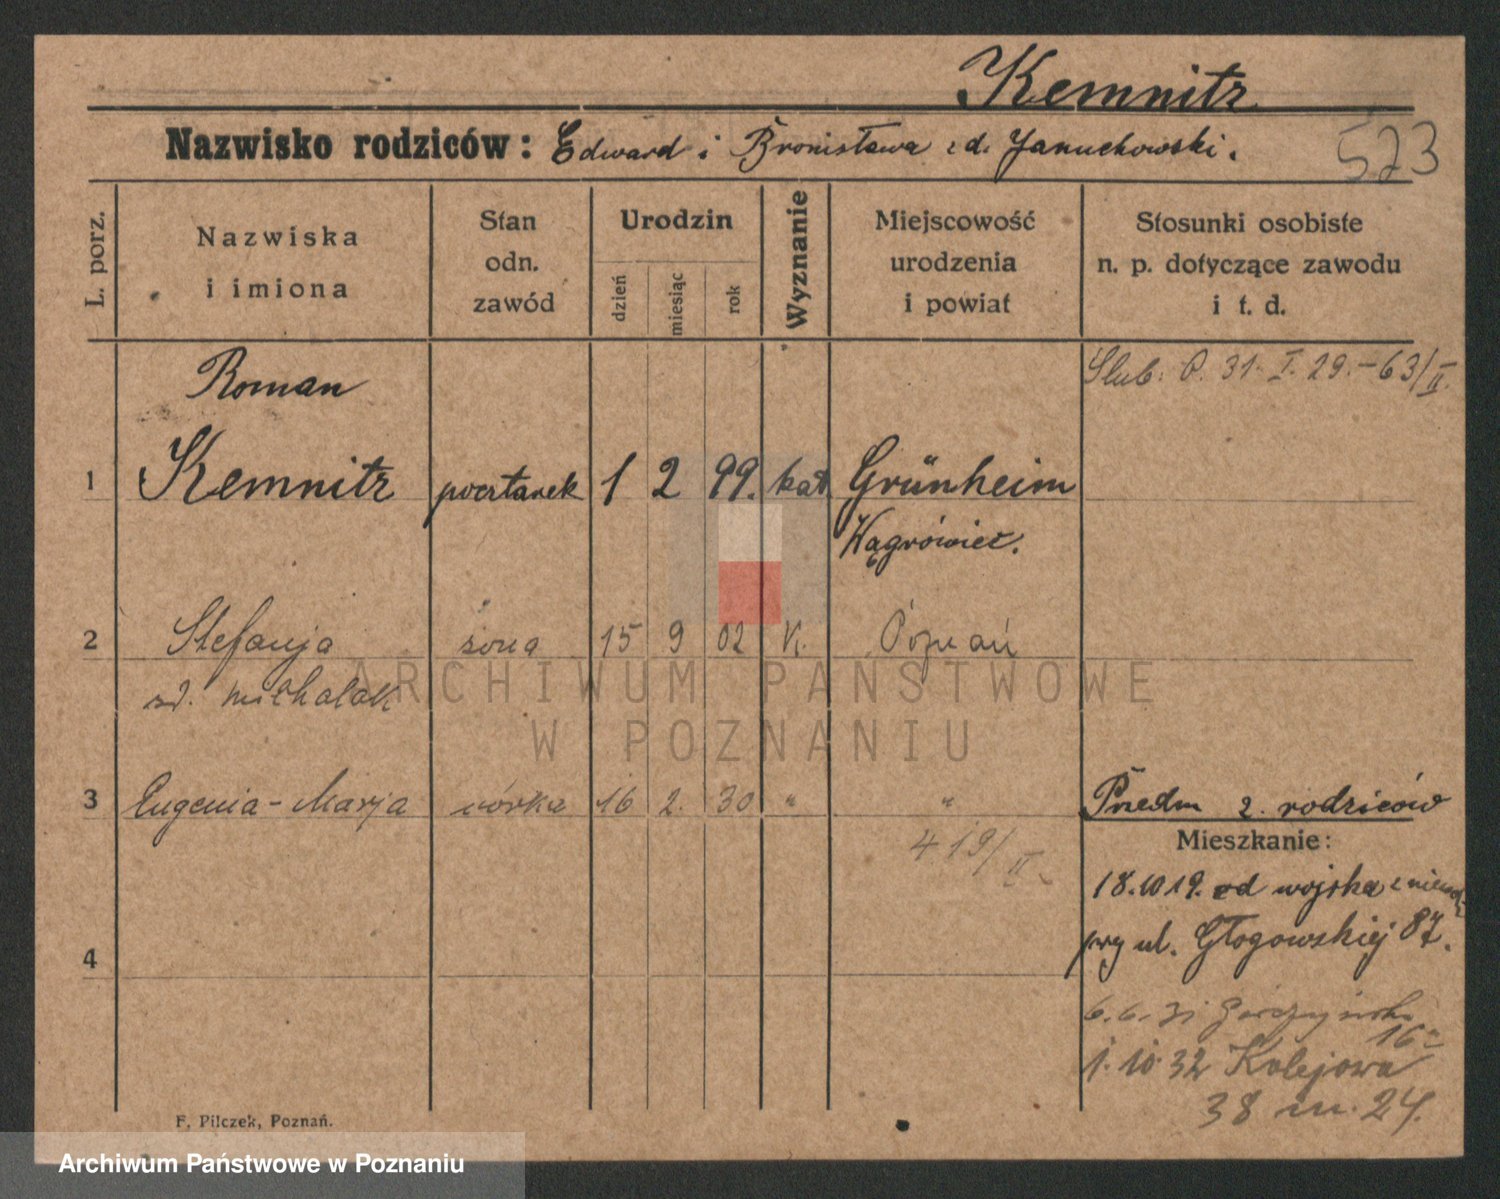 Kemnitz
Nazwisko rodziców: Edward i Bronisława z d. Januchowski.
573
L. porz.
Nazwiska
i imiona
Stan
odn.
zawód
Urodzin
dzień
miesiąc
rok
Wyznanie
Miejscowość
urodzenia
i powiat
Stosunki osobiste
n. p. dotyczące zawodu
i t. d.
Roman
Slub. P. 31. I. 29. - 63/II.
1 Kemnitz pocztarek 1 2 99. kat. Grünheim
Wągrówiec.
2 Stefanja żona 15 9 02 K. Poznań
zd. Michalak
3 Eugenia-Marja córka 16 2. 30 " "
419/II.
Przedm z. rodziców
Mieszkanie:
18.10 19. od wojska z
przy ul. Głogowskiej 87.
4
6.6.31 Górczyńska
16
1.10.32 Kolejowa
38 m. 24.
F. Pilczek, Poznań.
ARCHIWUM PAŃSTWOWE
W POZNANIU
Archiwum Państwowe w Poznaniu